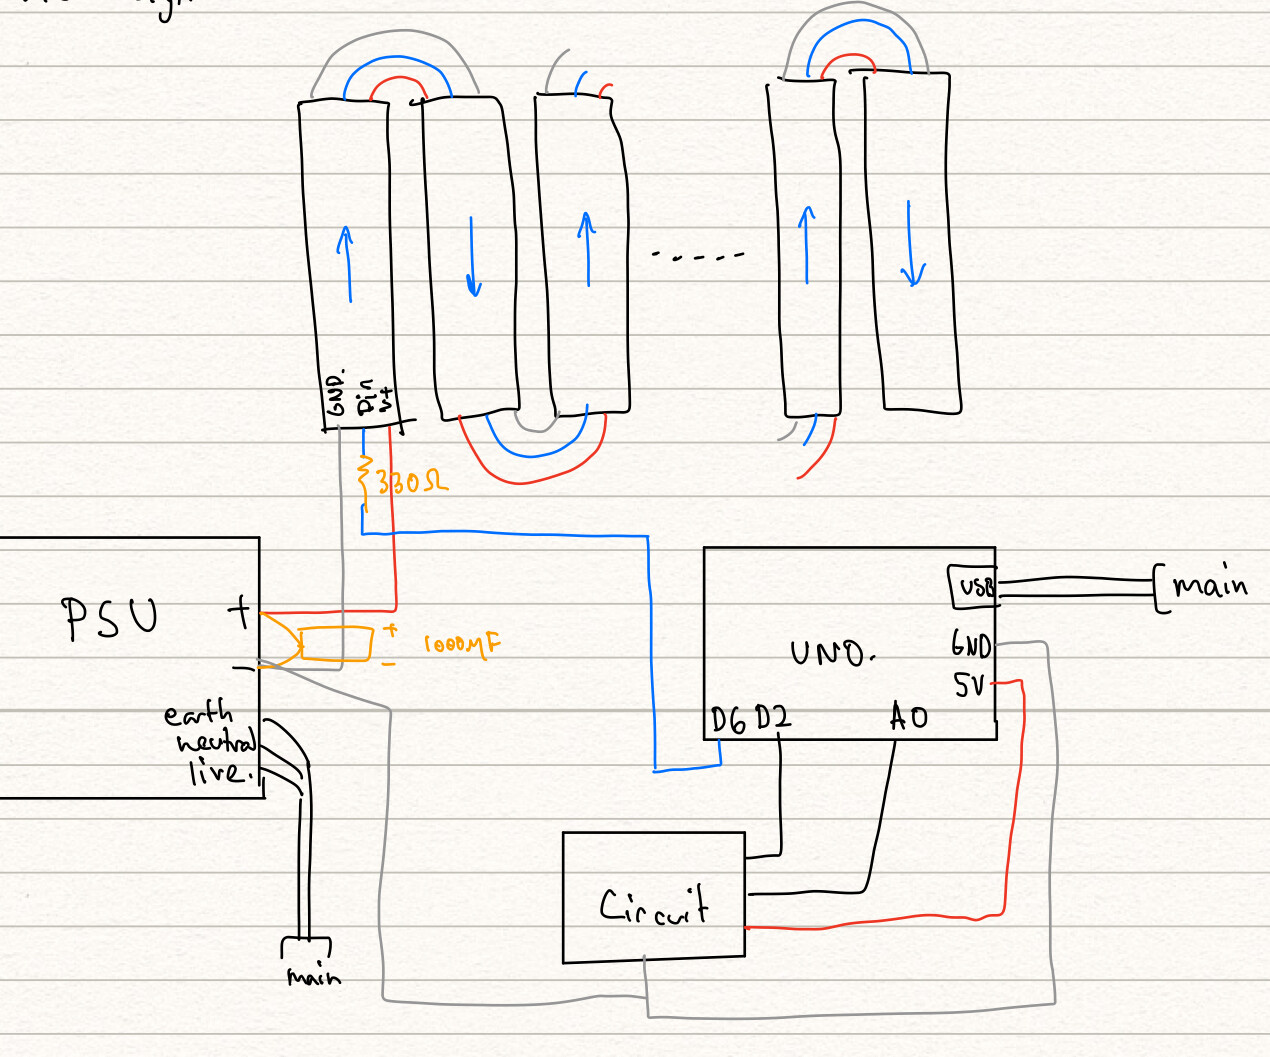 GND.
Din
V+
330Ω
PSU
+
−
+
−
1000μF
earth
neutral
live.
main
USB
main
UNO.
GND
5V
D6 D2
A0
Circuit